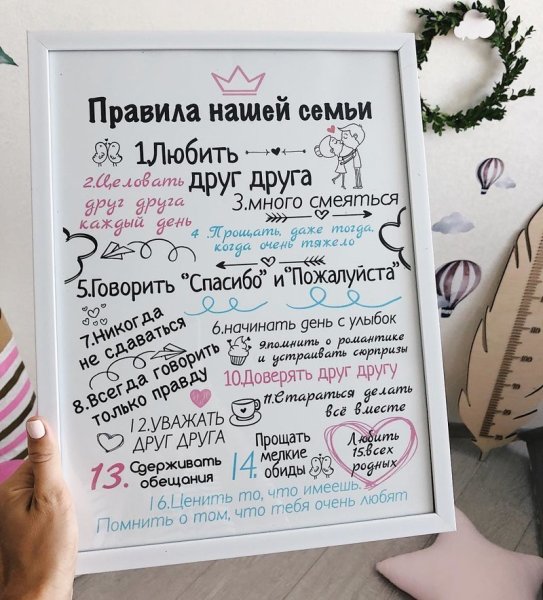 Правила нашей семьи
1.Любить
друг друга
2.Целовать
друг друга
каждый день
3.много смеяться
4.Прощать, даже тогда,
когда очень тяжело
5.Говорить "Спасибо" и "Пожалуйста"
6.начинать день с улыбок
7.Никогда
не сдаваться
8.Всегда говорить
только правду
9.помнить о романтике
и устраивать сюрпризы
10.Доверять друг другу
11.Стараться делать
всё вместе
12.УВАЖАТЬ
ДРУГ ДРУГА
13. Сдерживать
обещания
14. Прощать
мелкие
обиды
Любить
15.всех
родных
16.Ценить то, что имеешь.
Помнить о том, что тебя очень любят